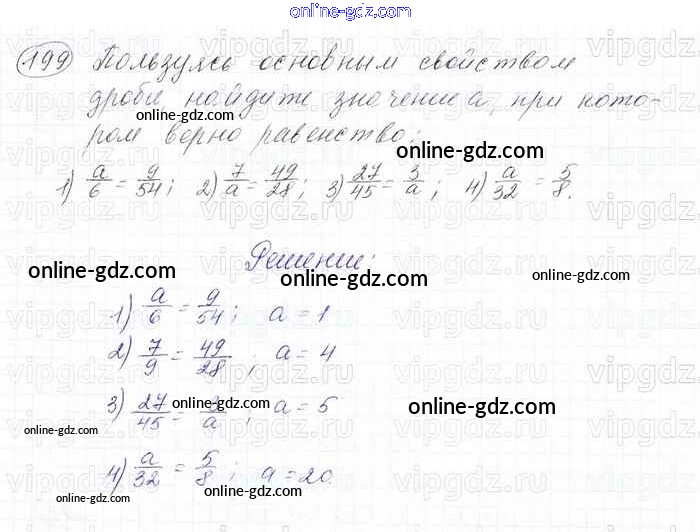 online-gdz.com
199 Пользуясь основным свойством
дроби найдите значение a, при кото-
ром верно равенство:
1) a/6 = 9/54; 2) 7/a = 49/28; 3) 27/45 = 3/a; 4) a/32 = 5/8.
Решение:
1) a/6 = 9/54; a = 1
2) 7/9 = 49/28; a = 4
3) 27/45 = 3/a; a = 5
4) a/32 = 5/8; a = 20
online-gdz.com
online-gdz.com
online-gdz.com
online-gdz.com
online-gdz.com
online-gdz.com
online-gdz.com
online-gdz.com
online-gdz.com
online-gdz.com
online-gdz.com